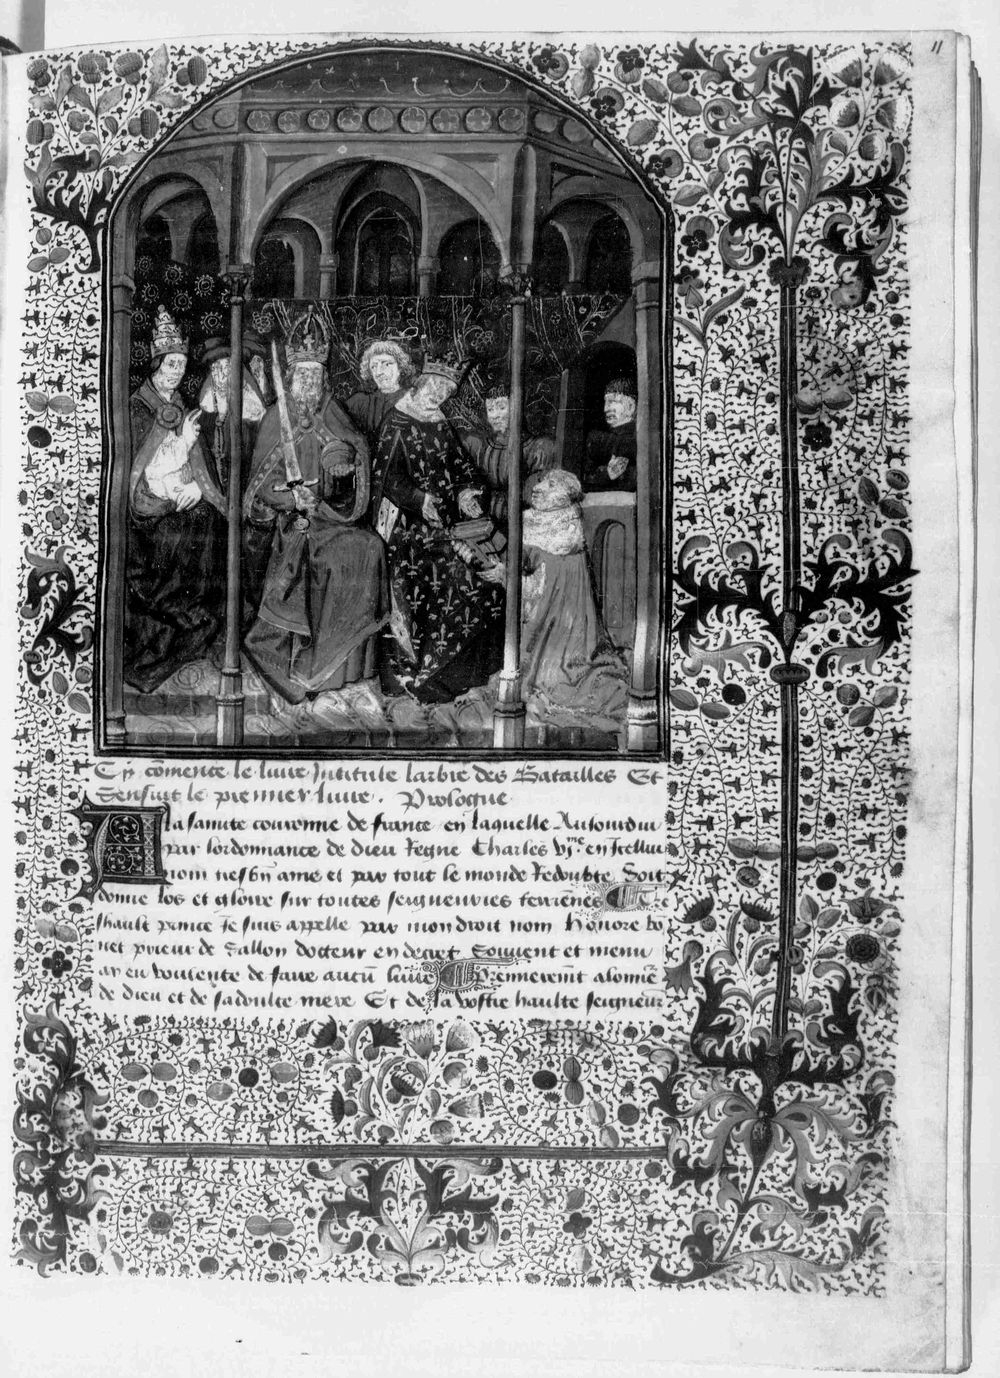 11
Cy cōmence le livre Intitule larbre des Batailles Et
Sensuit le premier livre . Prologue
A la sainte couronne de france en laquelle Aujourduy
par lordonnance de dieu Regne Charles vjme en Icelluy
nom tresbn̄ ame et par tout le monde Redoubte Soit
donne los et gloire sur toutes seigneuries terriēnes Tre
shault prince Je suis appelle par mon droit nom Honore bo
net prieur de Sallon docteur en decret Souvent et menu
ay eu voulente de faire aucū livre Premierem̄t a lonneᵘ
de dieu et de sa doulce mere Et de la vostre haulte seigneur